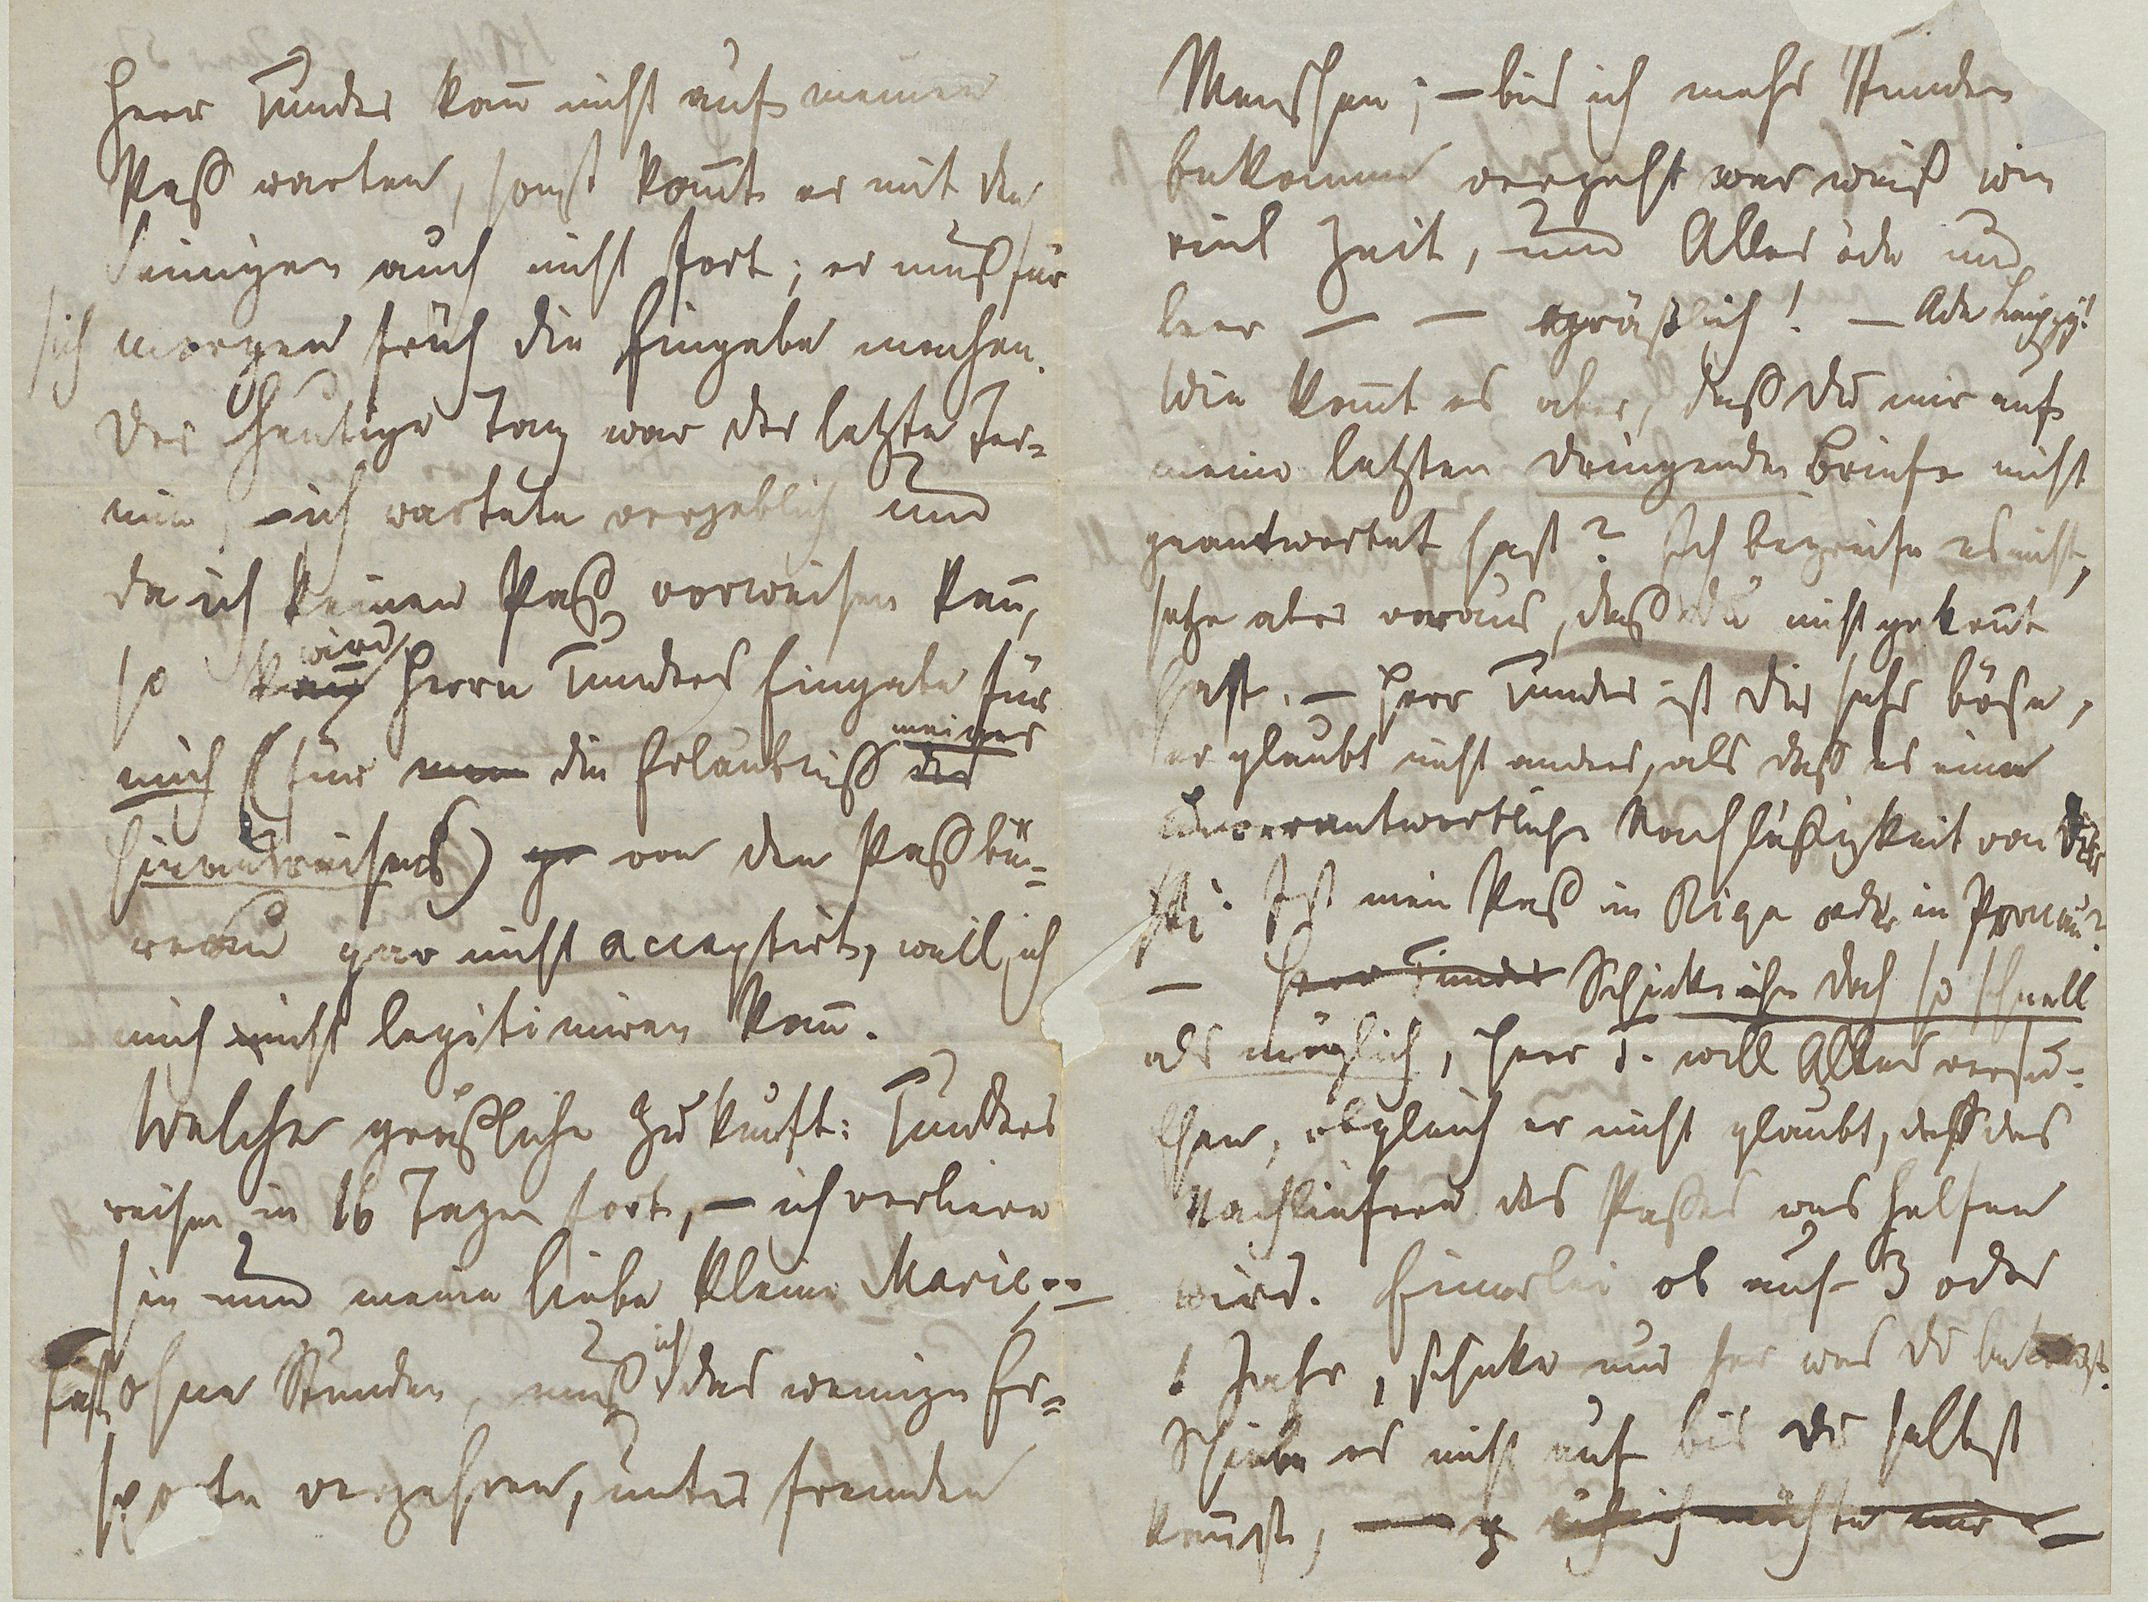 Herr Tunder kan̄ nicht auf meinen
Paß warten, sonst kom̄t er mit den
Seinigen auch nicht fort; er muß für
sich morgen früh die Eingabe machen.
Der heutige Tag war der letzte Ter=
min, – ich wartete vergeblich und
da ich keinen Paß vorweisen kan̄,
so kan̄ wird Herrn Tunders Eingabe für
mich (für mein die Erlaubniß der meines
Hinausreisens) ge von den Paßbü=
reaus gar nicht acceptirt, weil ich
mich nicht legitimiren kan̄.
Welche gräßliche Zukunft: Tunders
reisen in 16 Tagen fort, – ich verliere
sie und meine liebe kleine Marie..–
fast ohne Stunden, muß ich das wenige Er=
sparte verzehren, unter fremden
Menschen; – bis ich mehr Stunden
bekomme vergeht wer weiß wie
viel Zeit, und Alles öde und
leer – – gräßlich! – Ade Leipzig!
Wie kom̄t es aber, daß Du mir auf
meine letzten dringenden Briefe nicht
geantwortet hast? Ich begreife es nicht,
setze aber voraus, daß Du nicht gekon̄t
hast. – Herr Tunder ist Dir sehr böse,
er glaubt nicht anders, als daß es eine
unverantwortliche Nachläßigkeit von Dir
sei. Ist mein Paß in Riga oder in Pernau?
– Herr Tunder Schicke ihn doch so schnell
als möglich, Herr T. will Alles versu=
chen, obgleich er nicht glaubt, daß das
Nachliefern des Paßes was helfen
wird. Einerlei ob auf 3 oder
1 Jahr, schicke nur her was Du bekom̄st.
Schiebe es nicht auf bis Du selbst
kom̄st, ich möchte nur